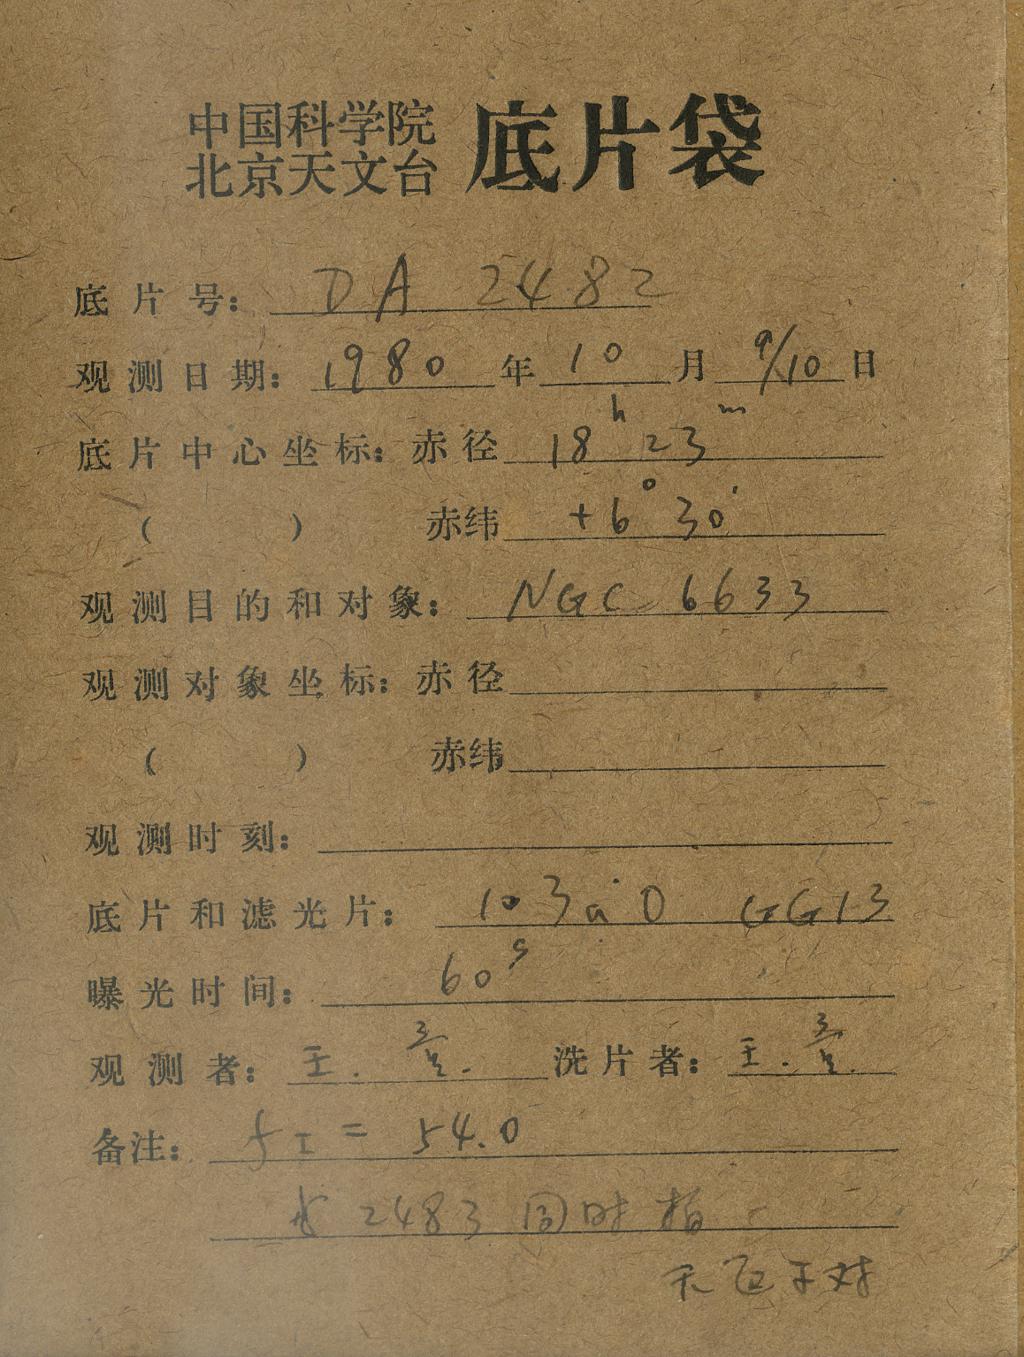 中国科学院
北京天文台 底片袋
底片号: DA 2482
观测日期: 1980 年 10 月 9/10 日
底片中心坐标: 赤径 18h 23m
( ) 赤纬 +6° 30'
观测目的和对象: NGC 6633
观测对象坐标: 赤径
( ) 赤纬
观测时刻:
底片和滤光片: 103aD GG13
曝光时间: 60s
观测者: 王. 洗片者: 王.
备注: = 54.0
2483 同时拍
天区不对